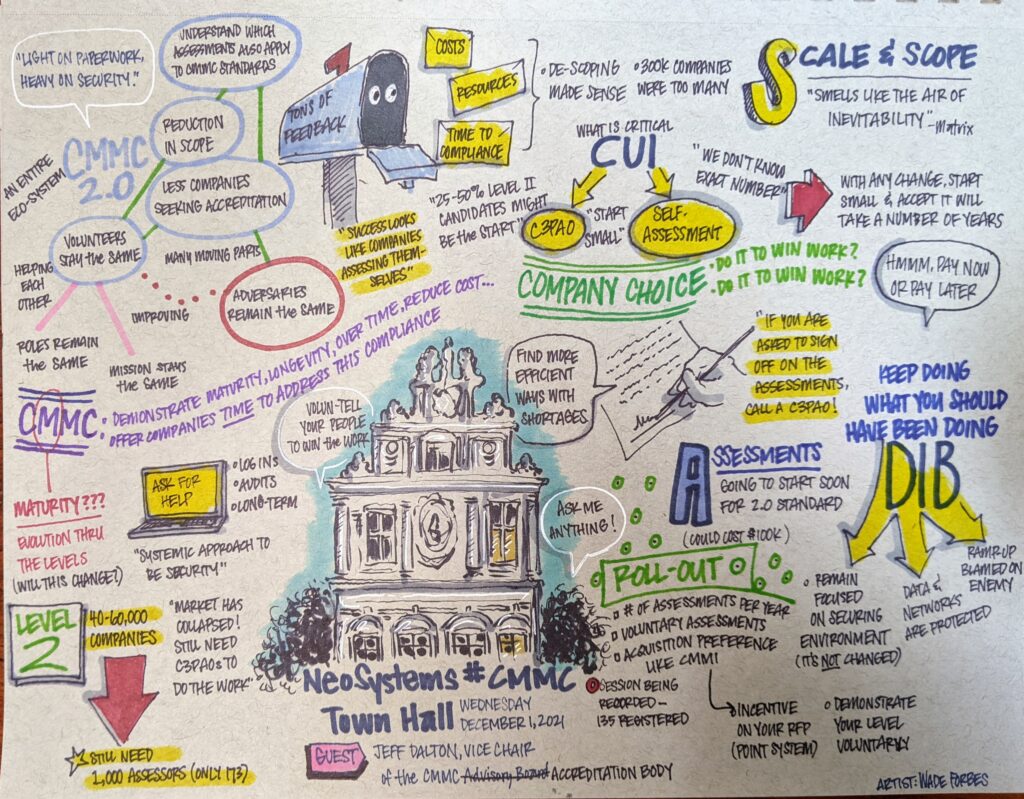 "LIGHT ON PAPERWORK,
HEAVY ON SECURITY."
UNDERSTAND WHICH
ASSESSMENTS ALSO APPLY
TO CMMC STANDARDS
REDUCTION
IN SCOPE
CMMC
2.0
AN ENTIRE
ECO-SYSTEM
LESS COMPANIES
SEEKING ACCREDITATION
VOLUNTEERS
STAY the SAME
MANY MOVING PARTS
HELPING
EACH
OTHER
IMPROVING
ADVERSARIES
REMAIN the SAME
ROLES REMAIN
the SAME
MISSION STAYS
the SAME
TONS OF
FEEDBACK
COSTS
RESOURCES
TIME TO
COMPLIANCE
• DE-SCOPING
MADE SENSE
• 300K COMPANIES
WERE TOO MANY
SCALE & SCOPE
"SMELLS LIKE THE AIR OF
INEVITABILITY" -Matrix
WHAT IS CRITICAL
CUI
"WE DON'T KNOW
EXACT NUMBER"
WITH ANY CHANGE, START
SMALL & ACCEPT IT WILL
TAKE A NUMBER OF YEARS
"25-50% LEVEL II
CANDIDATES MIGHT
BE the START"
C3PAO
"START
SMALL"
SELF-
ASSESSMENT
"SUCCESS LOOKS
LIKE COMPANIES
ASSESSING THEM-
SELVES"
COMPANY CHOICE
• DO IT TO WIN WORK?
• DO IT TO WIN WORK?
HMMM, PAY NOW
OR PAY LATER
CMMC: DEMONSTRATE MATURITY, LONGEVITY, OVER TIME, REDUCE COST...
OFFER COMPANIES TIME TO ADDRESS THIS COMPLIANCE
FIND MORE
EFFICIENT
WAYS WITH
SHORTAGES
"IF YOU ARE
ASKED TO SIGN
OFF ON THE
ASSESSMENTS,
CALL A C3PAO!
KEEP DOING
WHAT YOU SHOULD
HAVE BEEN DOING
DIB
VOLUN-TELL
YOUR PEOPLE
TO WIN the WORK
ASK FOR
HELP
• LOG INS
• AUDITS
• LONG-TERM
MATURITY???
EVOLUTION THRU
THE LEVELS
(WILL THIS CHANGE?)
"SYSTEMIC APPROACH TO
BE SECURITY"
ASSESSMENTS
GOING TO START SOON
FOR 2.0 STANDARD
(COULD COST $100K)
ASK ME
ANYTHING!
ROLL-OUT
• # OF ASSESSMENTS PER YEAR
• VOLUNTARY ASSESSMENTS
• ACQUISITION PREFERENCE
LIKE CMMI
INCENTIVE
ON YOUR RFP
(POINT SYSTEM)
• DEMONSTRATE
YOUR LEVEL
VOLUNTARILY
• REMAIN
FOCUSED
ON SECURING
ENVIRONMENT
(IT'S NOT CHANGED)
DATA &
NETWORKS
ARE PROTECTED
RAMP UP
BLAMED ON
ENEMY
LEVEL
2
40-60,000
COMPANIES
"MARKET HAS
COLLAPSED!
STILL NEED
C3PAOs TO
DO THE WORK"
STILL NEED
2,000 ASSESSORS (ONLY 173)
NeoSystems #CMMC
Town Hall
WEDNESDAY
DECEMBER 1, 2021
SESSION BEING
RECORDED—
135 REGISTERED
GUEST
JEFF DALTON, VICE CHAIR
of the CMMC Advisory Board ACCREDITATION BODY
ARTIST: WADE FORBES